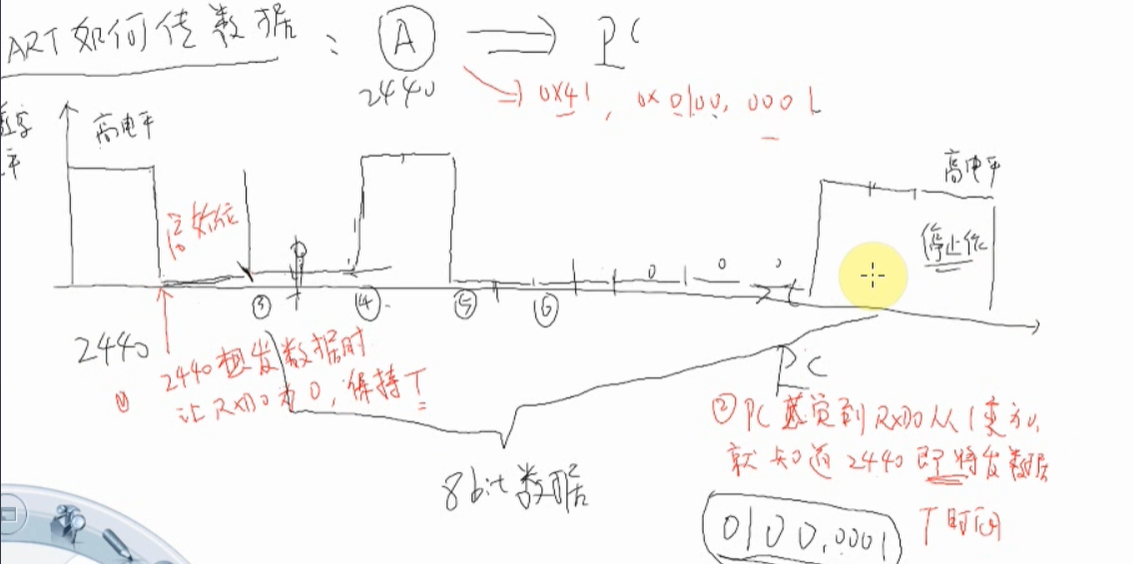 ART如何传数据: A ⇒ PC
2440
0x41, 0x0100,0001
高电平
高电平
起始位
停止位
0 0 0
③ ④ ⑤ ⑥
2440
① 2440想发数据时
让RXD0为0,保持T
PC
② PC 感觉到RXD0从1变为0,
就知道2440即将发数据
8bit数据
0100,0001
T时间